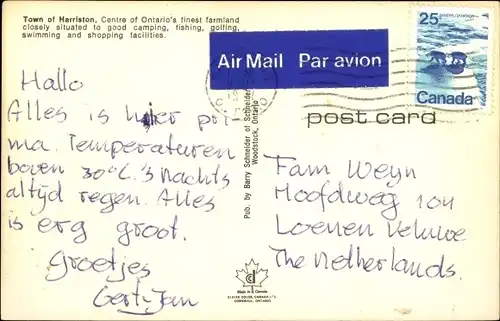 Town of Harriston, Centre of Ontario's finest farmland
closely situated to good camping, fishing, golfing,
swimming and shopping facilities.
Air Mail Par avion
25 postes/postage
Canada
post card
Hallo
Alles is hier pri-
ma. Temperaturen
boven 30°C. 's Nachts
altijd regen. Alles
is erg groot.
Groetjes
Gert-Jan
Pub. by Barry Schneider of Schneider
Woodstock, Ontario
Made in Canada
CORNWALL, ONTARIO
Fam Weyn
Hoofdweg 104
Loenen Veluwe
The Netherlands.